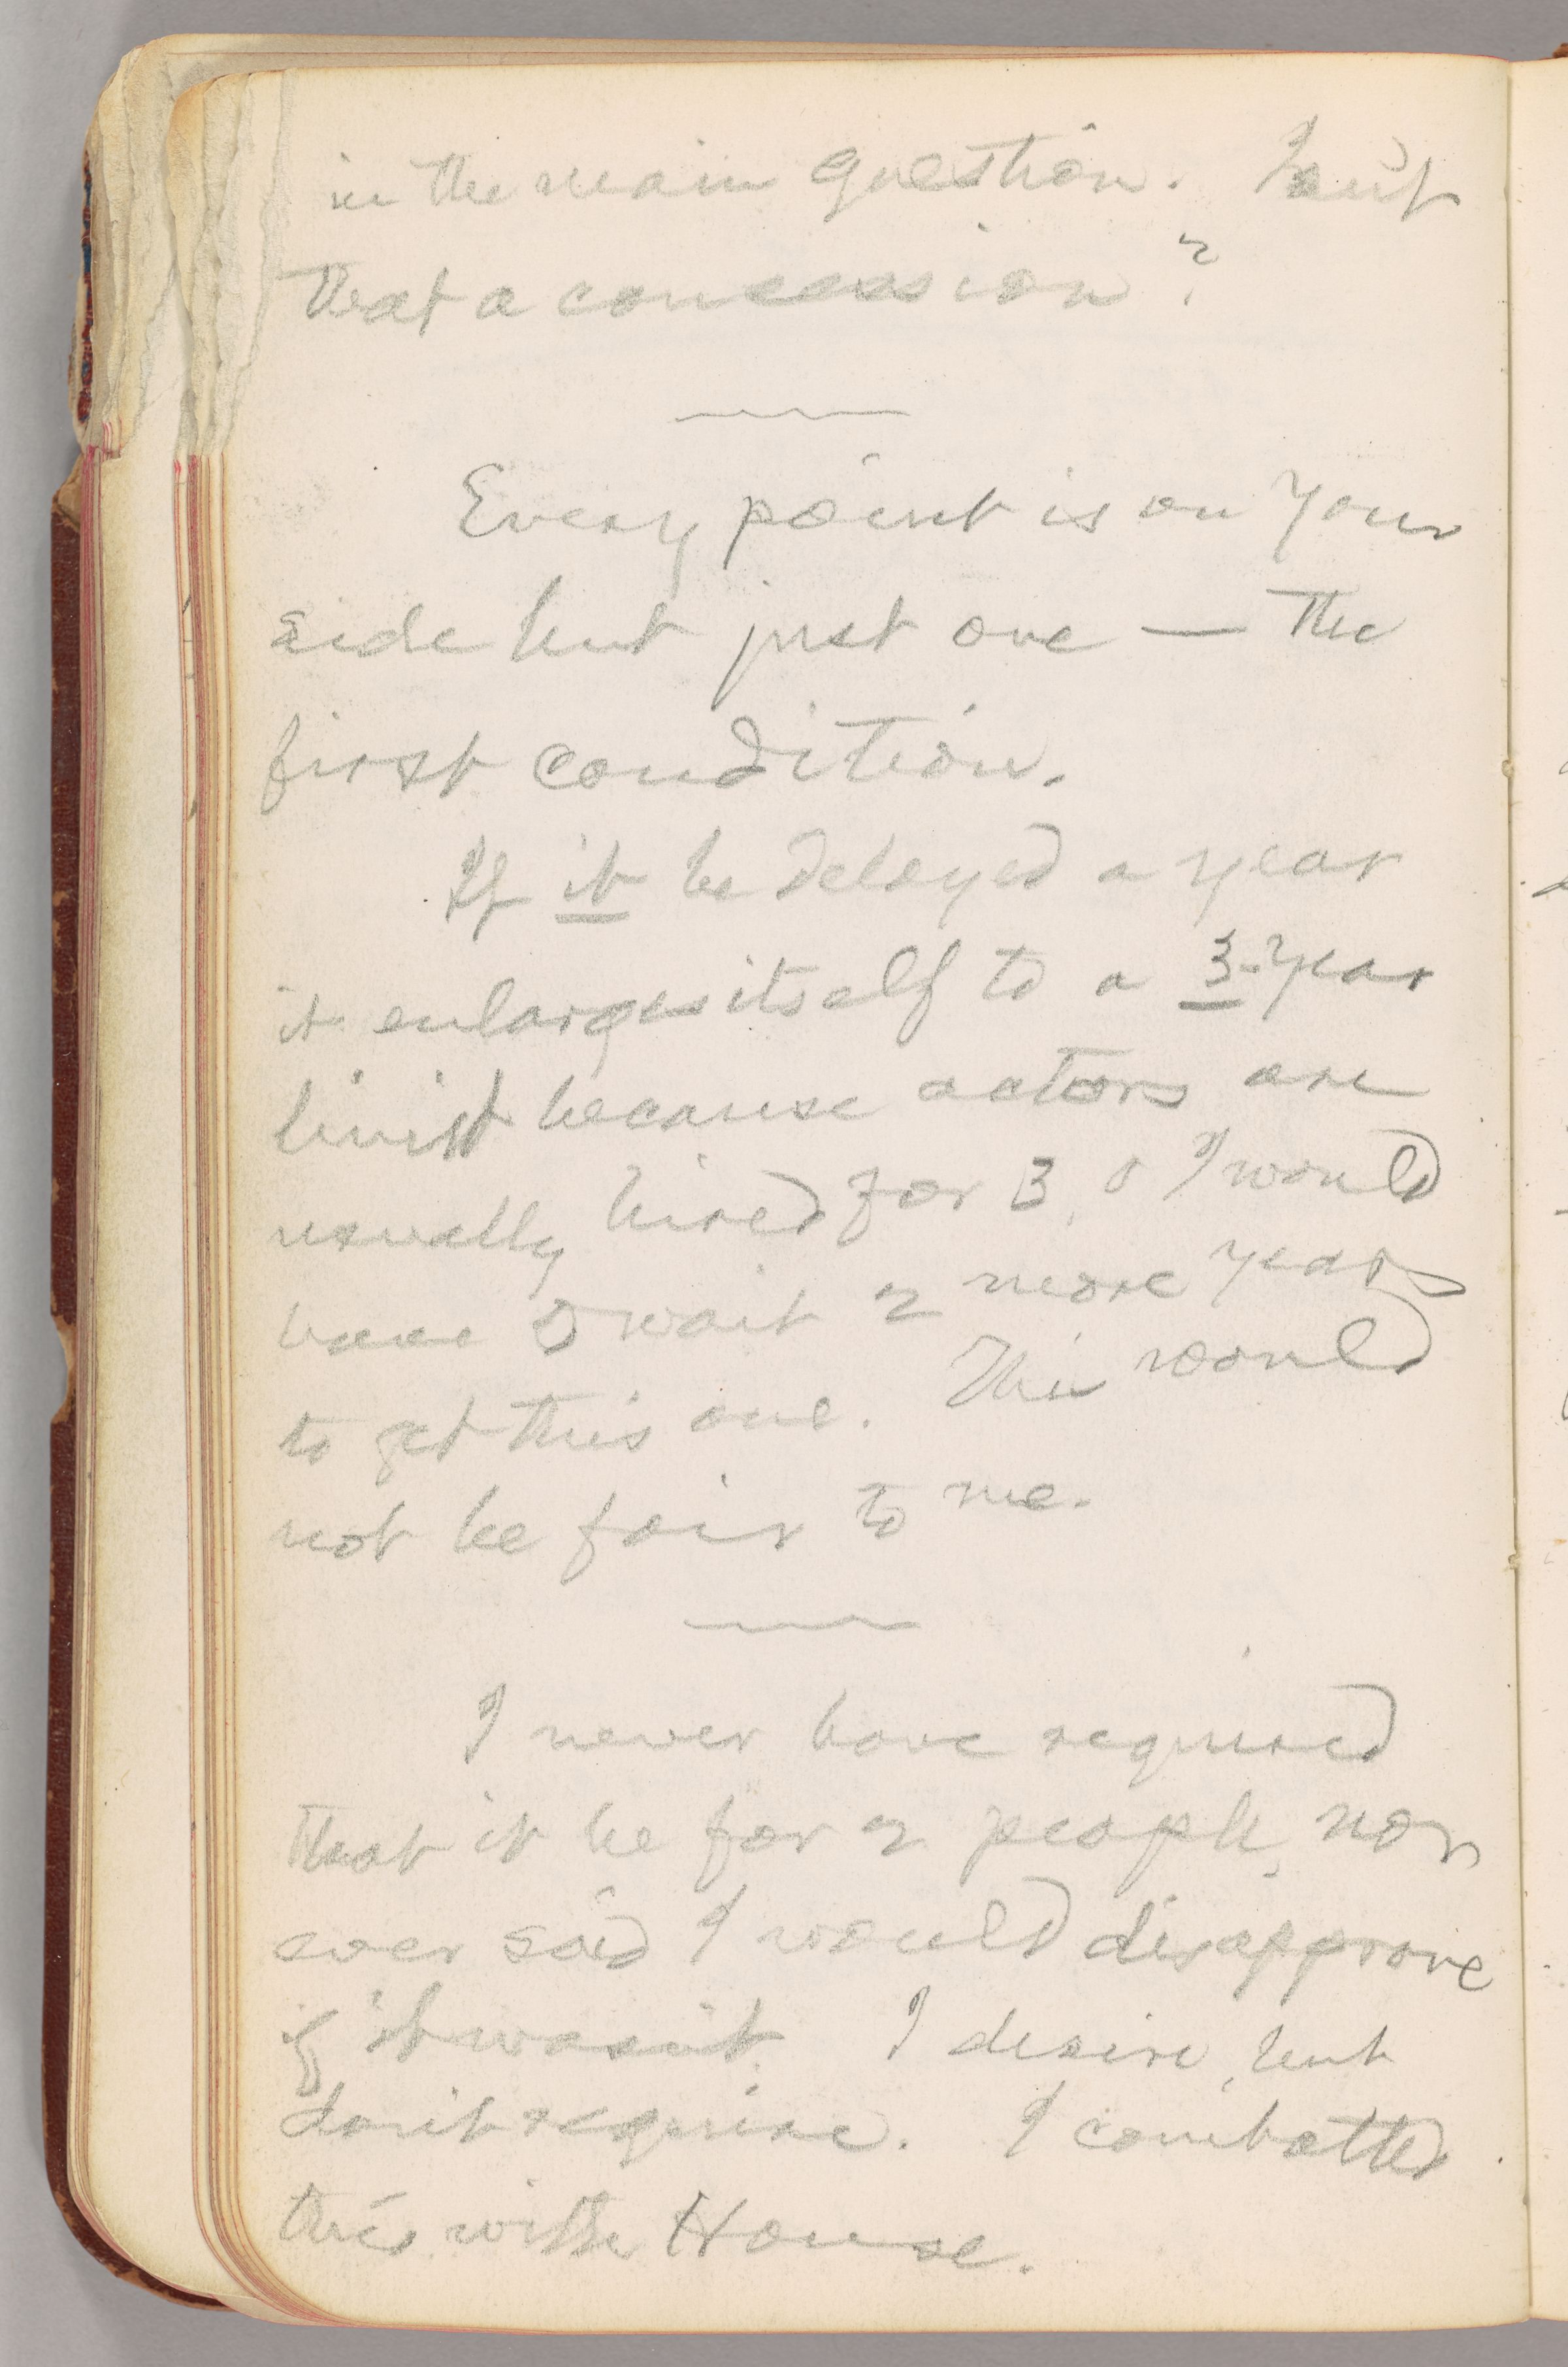 in the main question. Isn't
that a concession?
Every point is on your
side but just one — the
first condition.
If it be delayed a year
it enlarges itself to a 3-year
limit because actors are
usually hired for 3, & I would
have to wait 2 more years
to get this one. This would
not be fair to me.
I never have required
that it be for 2 people, nor
ever said I would disapprove
if it wasn't. I desire, but
don't require. I combatted
this with House.